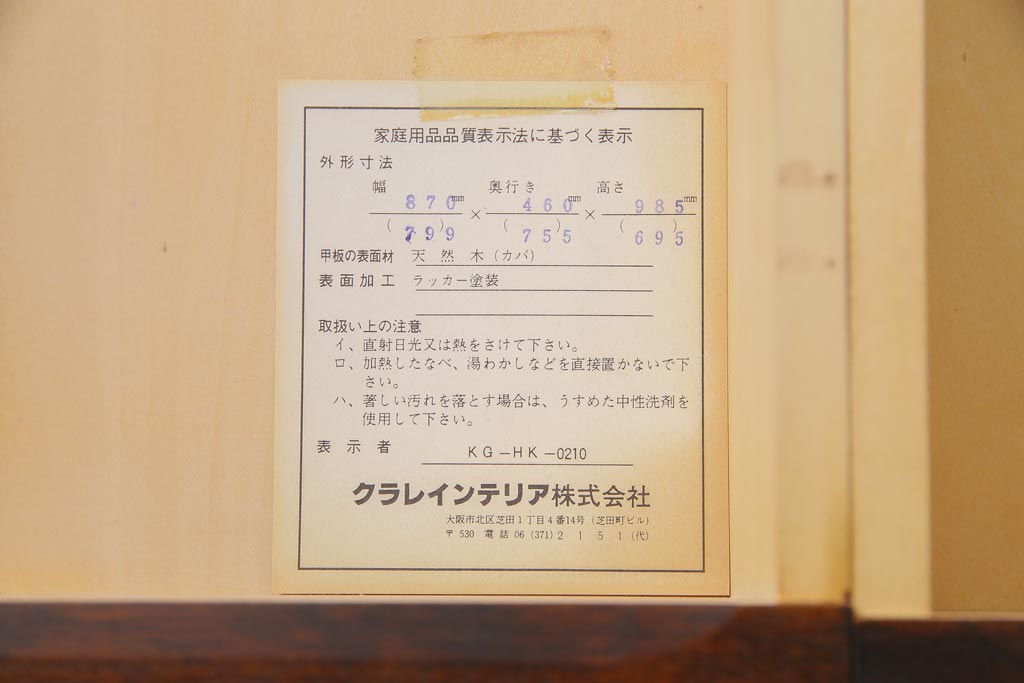 家庭用品品質表示法に基づく表示
外形寸法
幅 奥行き 高さ
870mm × 460mm × 985mm
(799) (755) (695)
甲板の表面材 天然木(カバ)
表面加工 ラッカー塗装
取扱い上の注意
イ、直射日光又は熱をさけて下さい。
ロ、加熱したなべ、湯わかしなどを直接置かないで下
さい。
ハ、著しい汚れを落とす場合は、うすめた中性洗剤を
使用して下さい。
表示者 KG-HK-0210
クラレインテリア株式会社
大阪市北区芝田1丁目4番14号(芝田町ビル)
〒530 電話 06(371)2151(代)